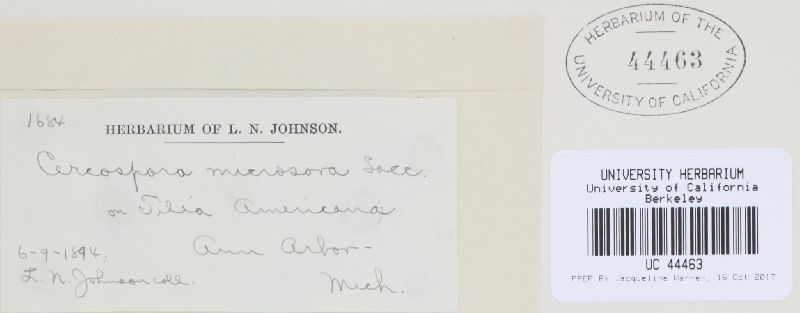 1684
HERBARIUM OF L. N. JOHNSON.
Cercospora microsora Sacc.
on Tilia Americana
Ann Arbor-
6-9-1894.
L. N. Johnson coll.
Mich.
HERBARIUM OF THE
44463
UNIVERSITY OF CALIFORNIA
UNIVERSITY HERBARIUM
University of California
Berkeley
UC 44463
PREP BY Jacqueline Warren, 18 Oct 2017